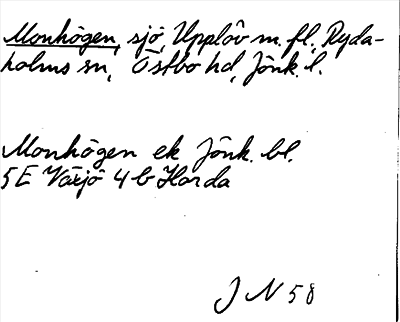 Monhögen, sjö, Upplöv m. fl., Ryda-
holms sn, Östbo hd, Jönk. l.
Monhögen ek Jönk. bl.
5E Växjö 4b Horda
J N 58